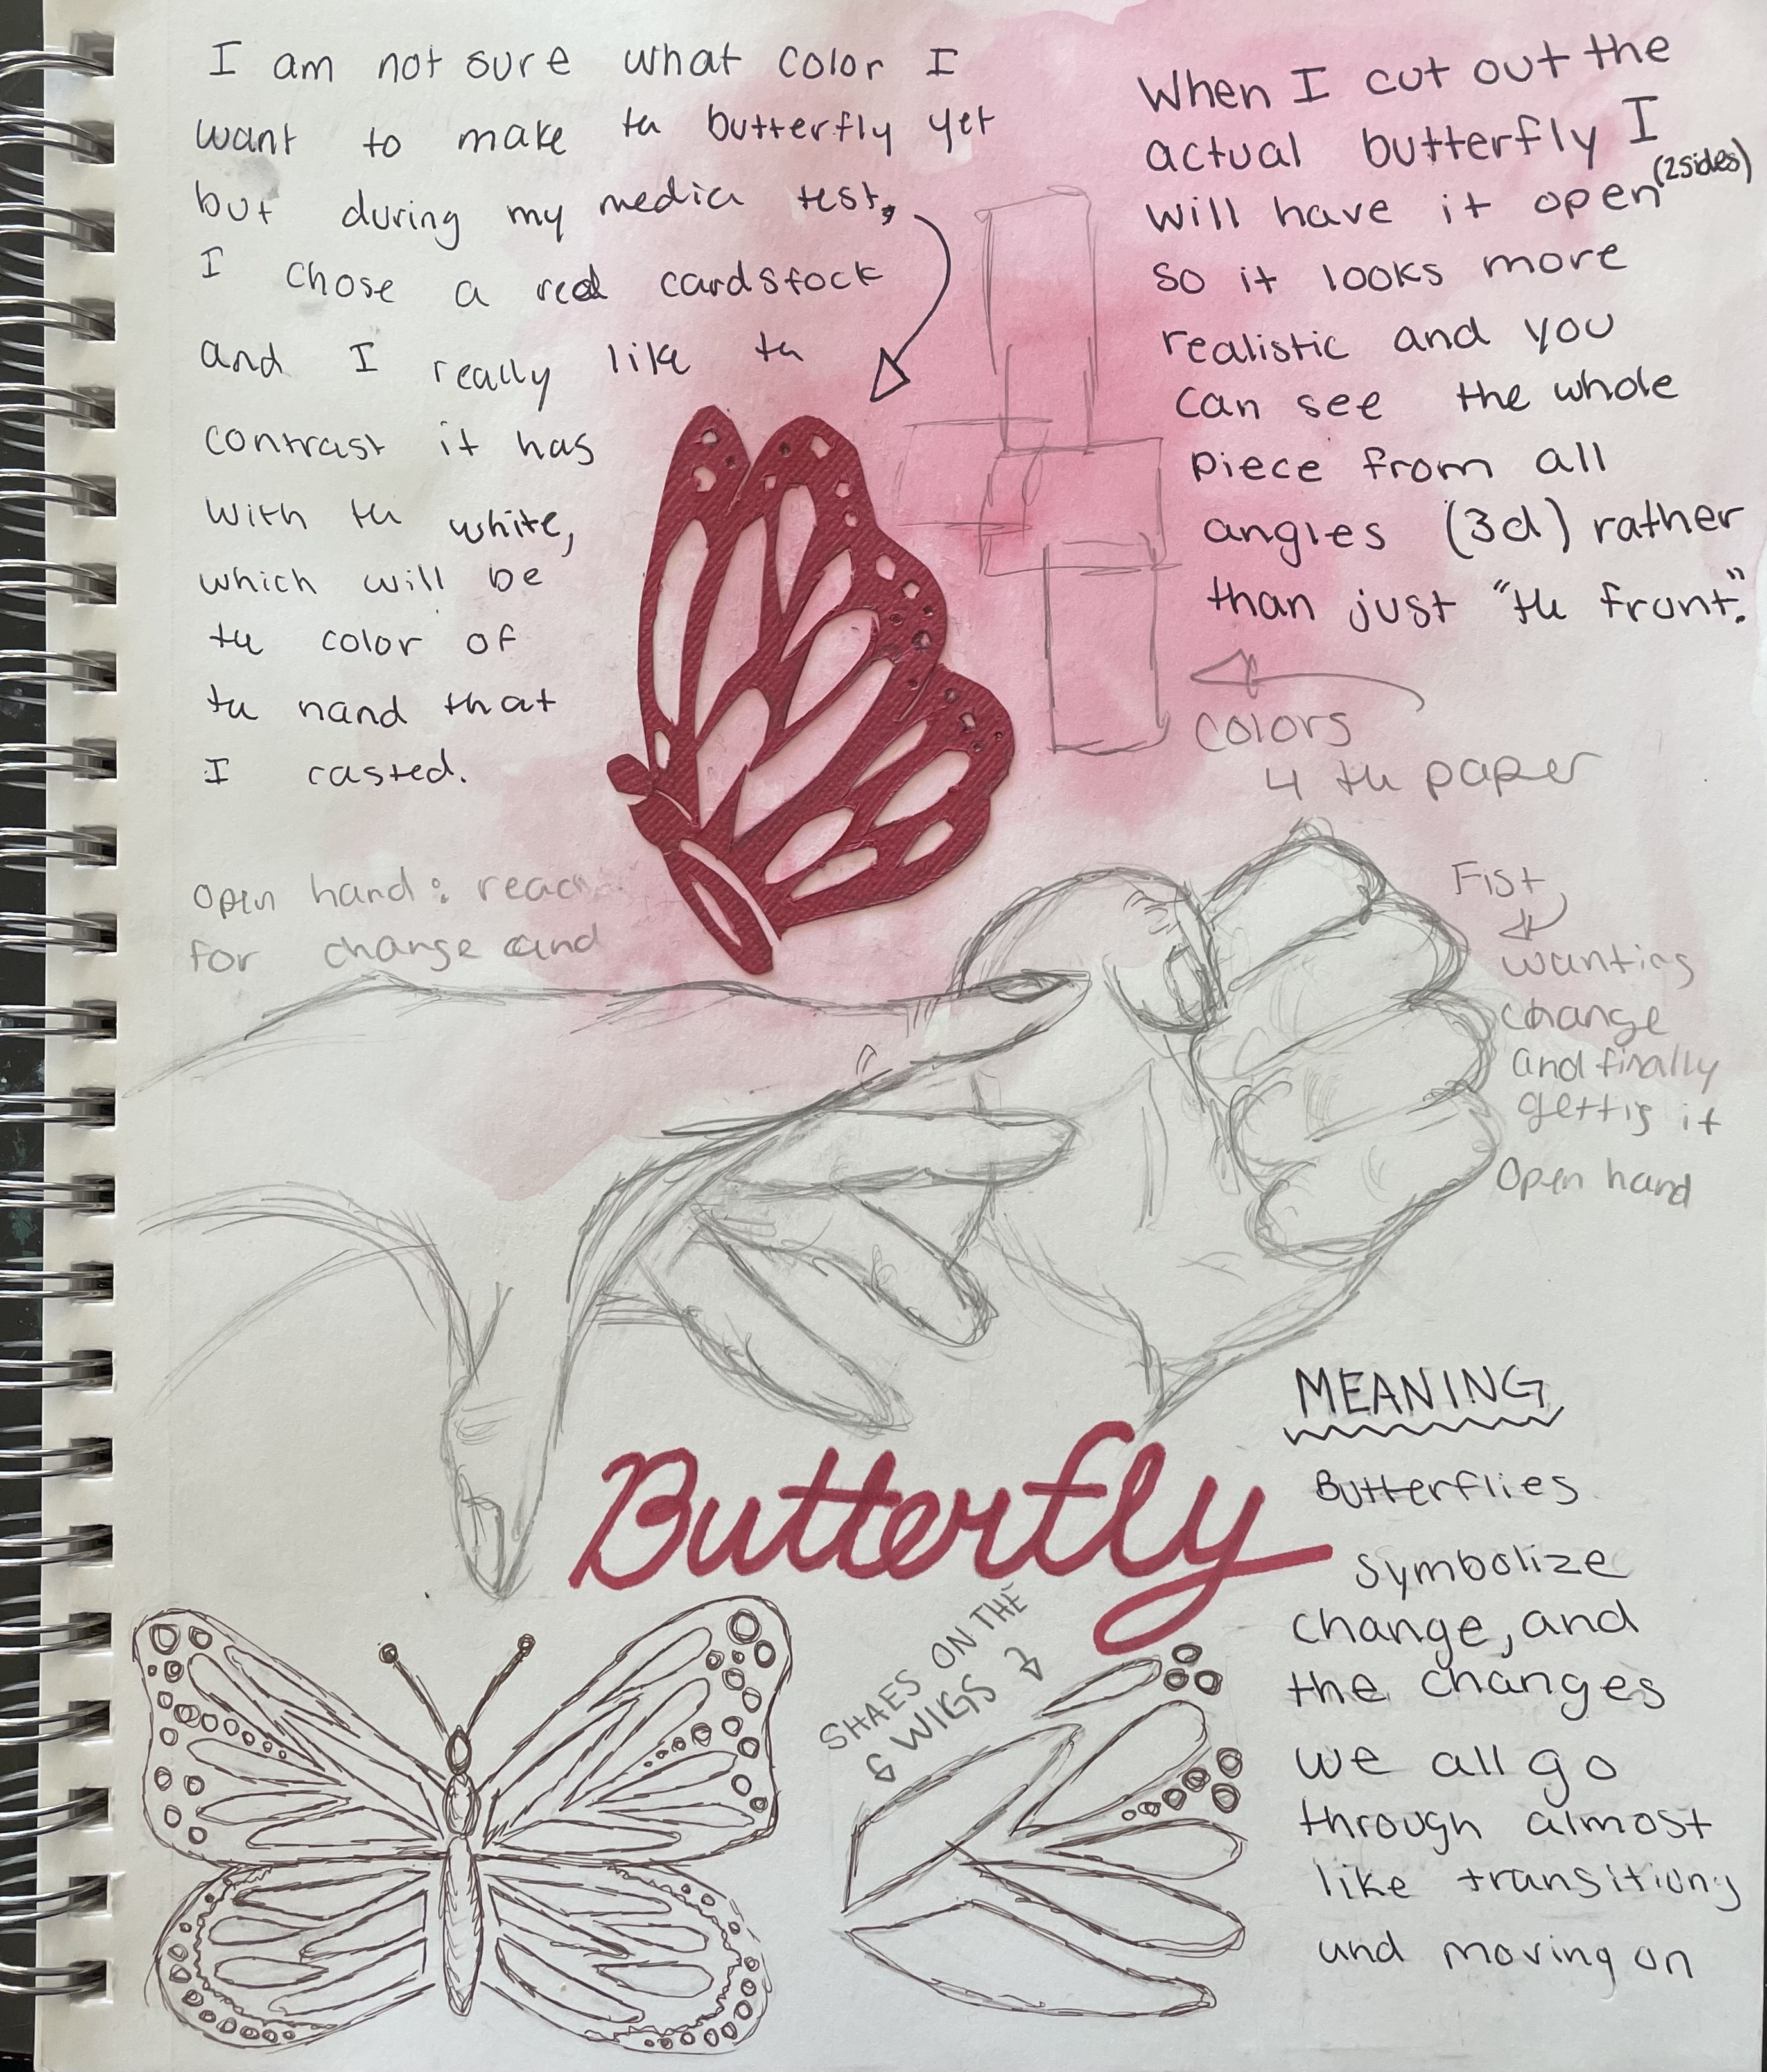 I am not sure what color I
want to make th butterfly yet
but during my media test,
I chose a red cardstock
and I really like th
contrast it has
with th white,
which will be
th color of
th hand that
I casted.
When I cut out the
actual butterfly I
will have it open (2 sides)
so it looks more
realistic and you
can see the whole
piece from all
angles (3d) rather
than just "th front".
colors
4 th paper
Open hand: reach
for change and
Fist
wanting
change
and finally
getting it
Open hand
Butterfly
MEANING
Butterflies
symbolize
change, and
the changes
we all go
through almost
like transitiong
and moving on
SHAES ON THE
WIGS